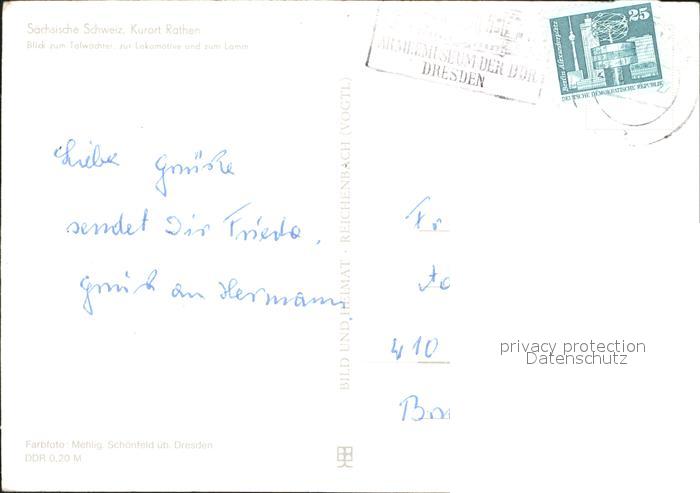 Sächsische Schweiz, Kurort Rathen
Blick zum Talwächter, zur Lokomotive und zum Lamm
ARMEEMUSEUM DER DDR
DRESDEN
25
Berlin, Alexanderplatz
DEUTSCHE DEMOKRATISCHE REPUBLIK
Liebe Grüße
sendet Dir Frieda.
Gruß an Hermann.
BILD UND HEIMAT · REICHENBACH (VOGTL)
Fr
410
privacy protection
Datenschutz
Farbfoto: Mehlig, Schönfeld üb. Dresden
DDR 0,20 M